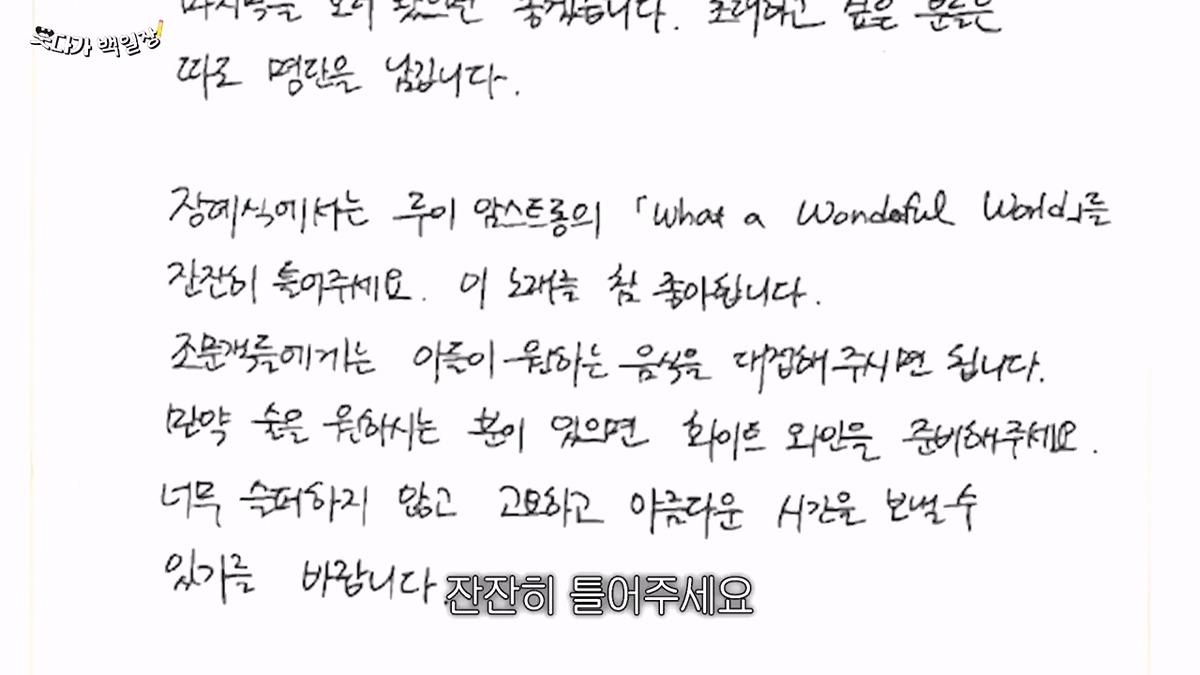 웃다가 백일장
마지막을 보러 왔으면 좋겠습니다. 초대하고 싶은 분들은
따로 명단을 남깁니다.
장례식에서는 루이 암스트롱의 「What a Wondeful World」를
잔잔히 틀어주세요. 이 노래를 참 좋아합니다.
조문객들에게는 이들이 원하는 음식을 대접해주시면 됩니다.
만약 술을 원하시는 분이 있으면 화이트 와인을 준비해주세요.
너무 슬퍼하지 않고 고요하고 아름다운 시간을 보낼 수
있기를 바랍니다.
잔잔히 틀어주세요